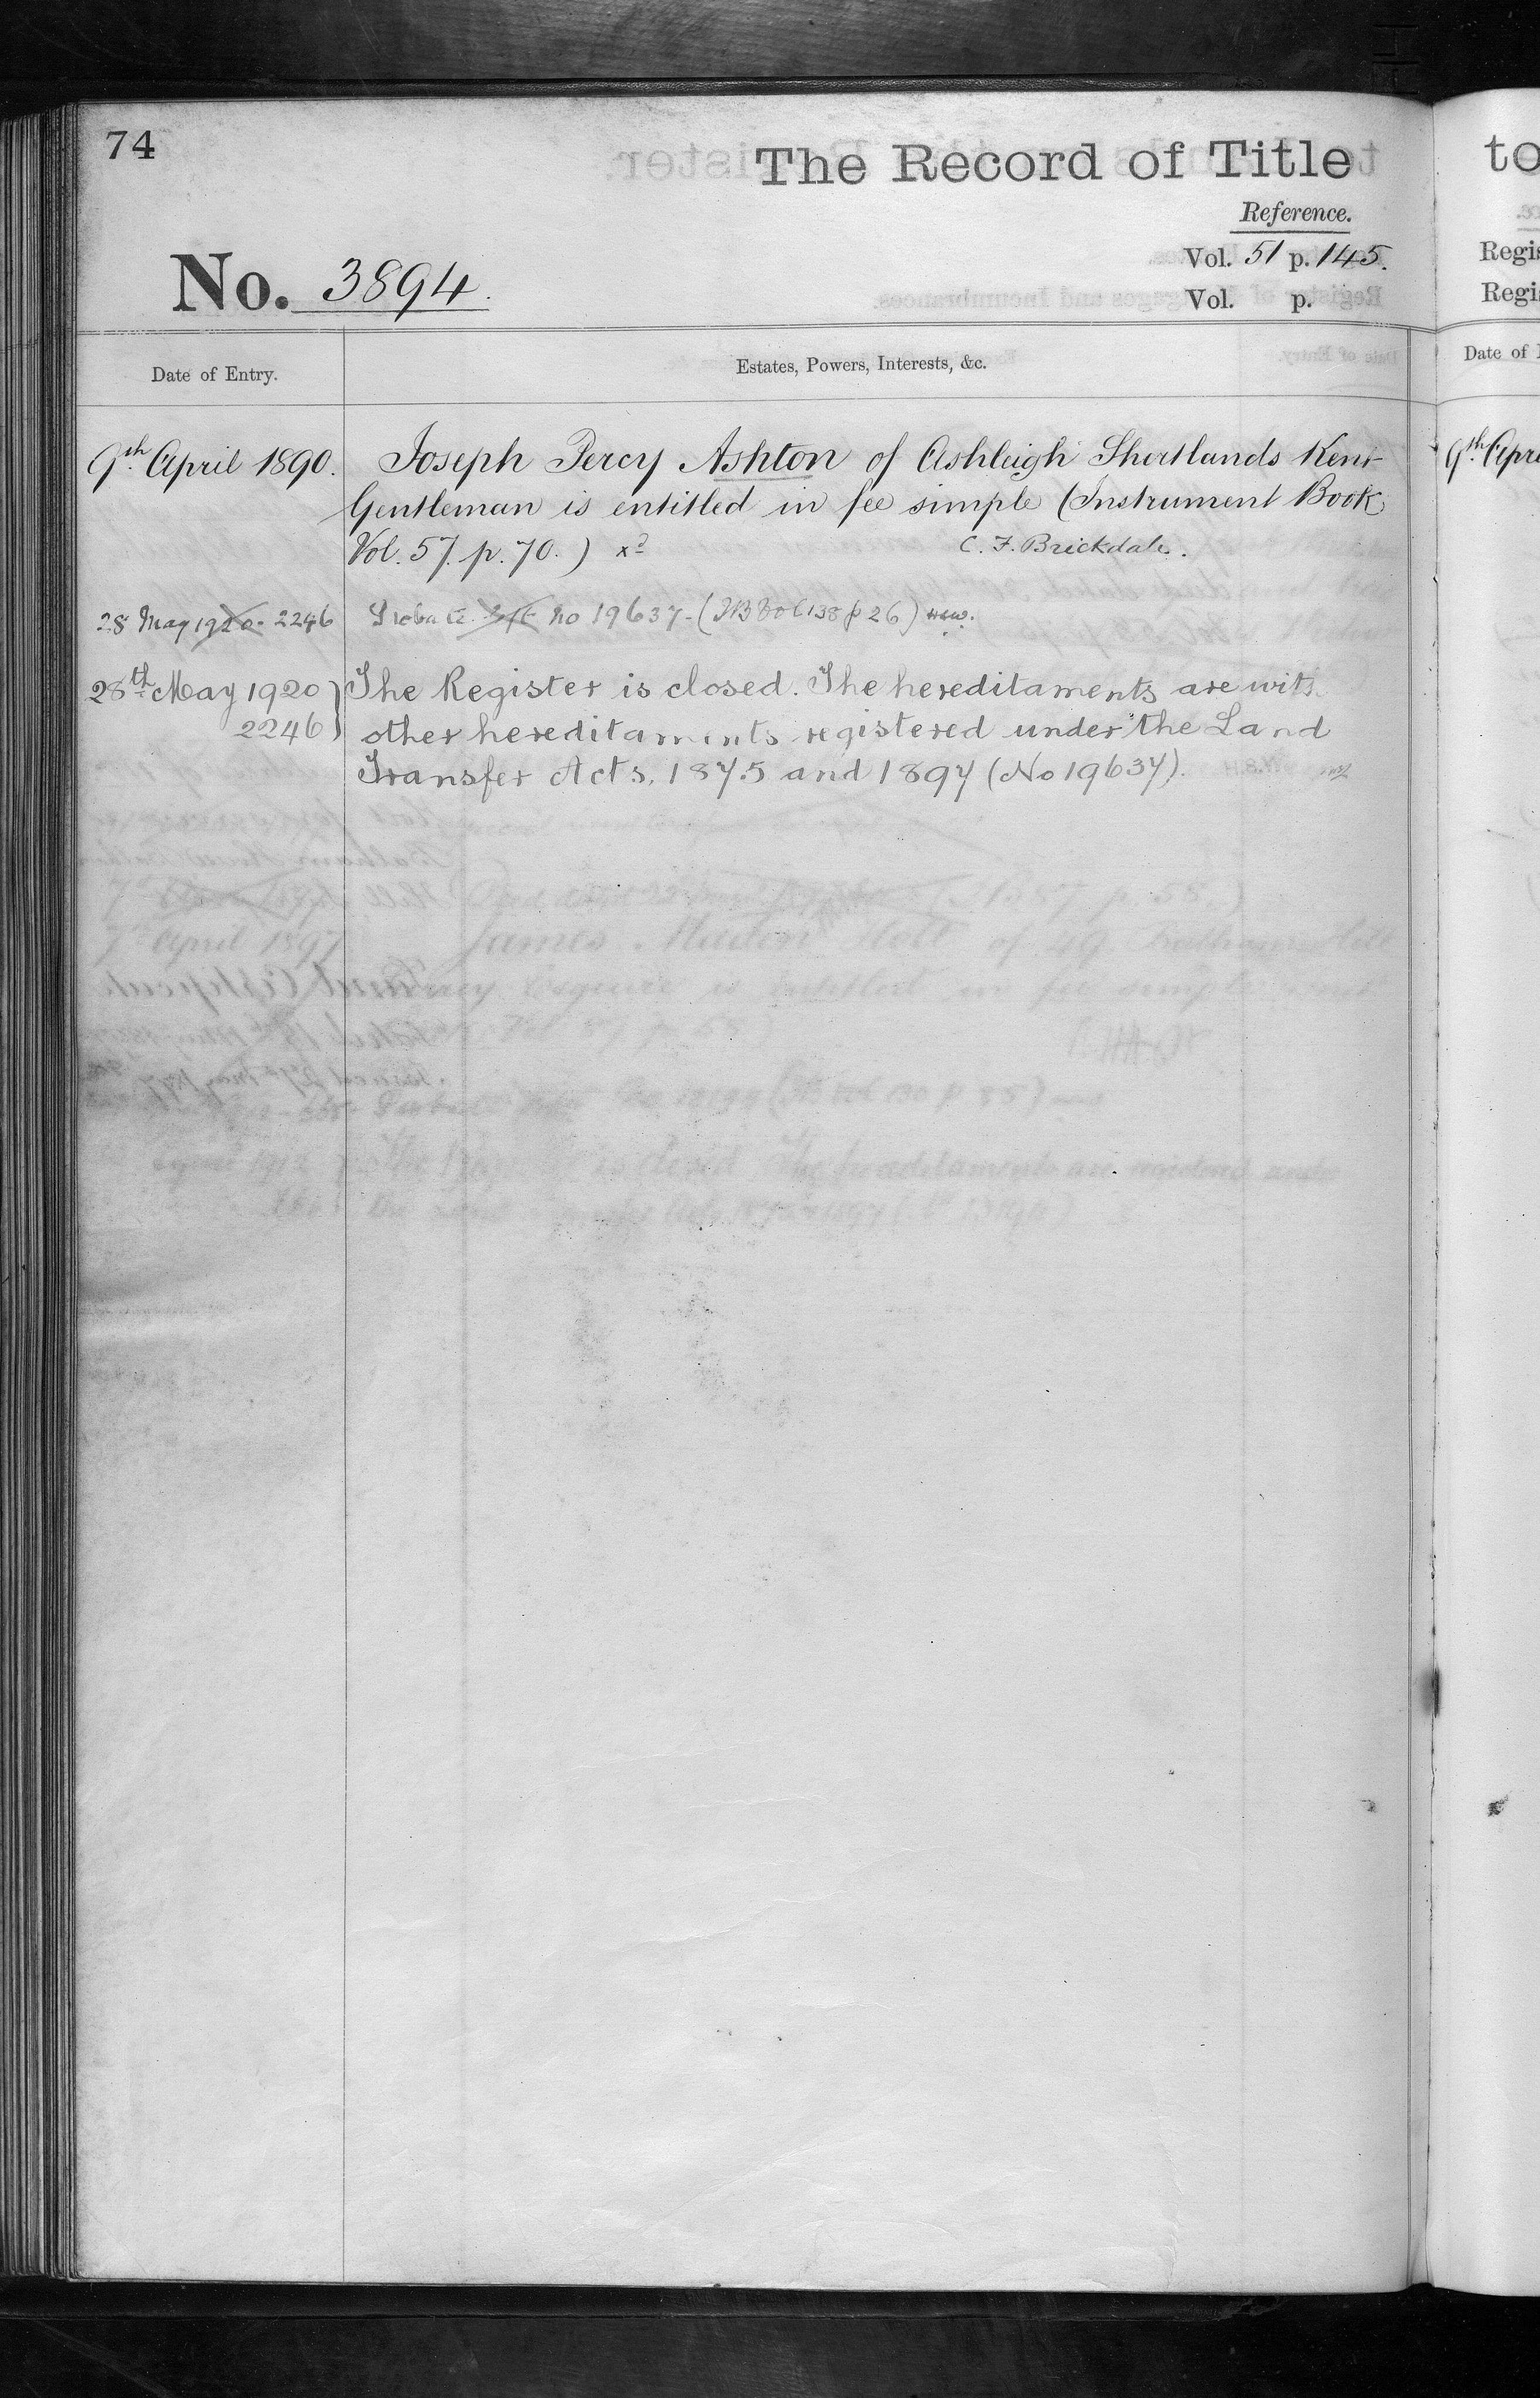 74
The Record of Title
Reference.
Vol. 51 p. 145.
No. 3894.
Vol. p.
Date of Entry.
Estates, Powers, Interests, &c.
9th. April 1890. Joseph Percy Ashton of Ashleigh Shortlands Kent
Gentleman is entitled in fee simple (Instrument Book
Vol. 57. p. 70.) xd C. F. Brickdale.
28 May 1920. 2246 Probate no 19637 - (IB Vol 138 p 26)
28th May 1920 The Register is closed. The hereditaments are with
2246 other hereditaments registered under the Land
Transfer Acts, 1875 and 1897 (No 19637).
to
Regis
Regi
Date of
9th. Apri